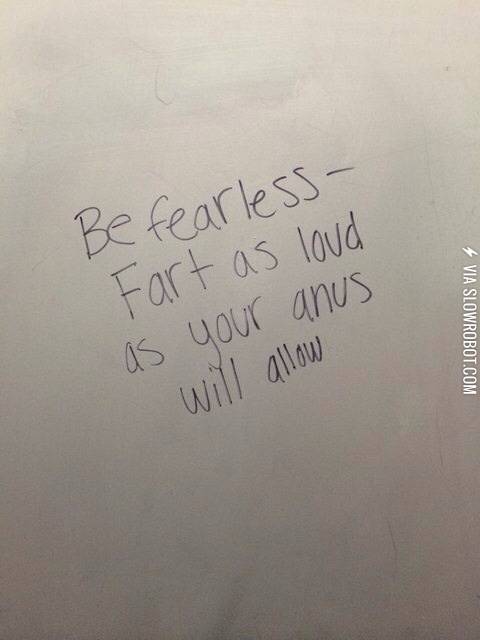 Be fearless-
Fart as loud
as your anus
will allow
VIA SLOWROBOT.COM